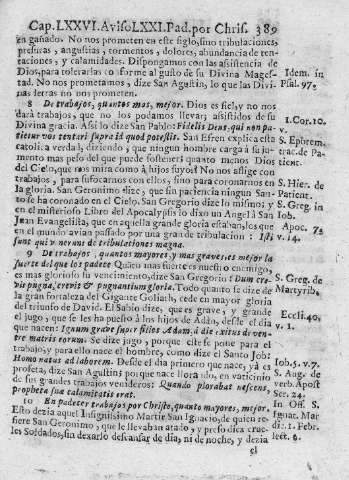 Cap. LXXVI. Aviso LXXI. Pad. por Chris. 389
engañado. No nos prometen en este siglo, sino tribulaciones,
presuras, angustias, tormentos, dolores, abundancia de ten-
taciones, y calamidades. Dispongamos con las asistencia de
Dios, para tolerarlas conforme al gusto de su Divina Mages-
tad. No nos prometamos, dize San Agustin, lo que las Divi-
nas letras no nos prometen.
Idem. in
Psal. 97.
8 De trabajos, quantos mas, mejor. Dios es fiel, y no nos
dará trabajos, que no los podamos llevar; assistidos de su
Divina gracia. Assi lo dize San Pablo: Fidelis Deus, qui non pa-
tietur vos tentari supra id quod potestis. San Efren explica esta
catolica verdad, diziendo, que ningun hombre carga à su ju-
mento mas peso del que puede sostener: quanto menos Dios
del Cielo, que nos mira como à hijos suyos? No nos assige con
trabajos, para sufocarnos con ellos, sino para coronarnos en
la gloria. San Geronimo dize, que sin paciencia ningun San-
to se ha coronado en el Cielo. San Gregorio dize lo mismo; y
en el misterioso Libro del Apocalypsis lo dixo un Angel à San
Juan Evangelista, que en aquella grande gloria estaban los que
en el mundo avian passado por una grande tribulacion: Isti
sunt qui venerunt de tribulatione magna.
1. Cor. 10.
v.
S. Ephrem.
trac. de Pa-
tient.
S. Hier. de
Patient.
S. Greg. in
Iob.
Apoc. 7.
v. 14.
9 De trabajos, quantos mayores, y mas graves, es mejor la
suerte del que los padece. Quien mas fuerte es nuestro enemigo,
es mas glorioso su vencimiento, dize San Gregorio: Dum cre-
vit pugna, crevit & pugnantium gloria. Todo quanto se dize de
la gran fortaleza del Gigante Goliath, cede en mayor gloria
del triunfo de David. El Sabio dize, que es grave, y grande
el jugo, que se les ha puesto à los hijos de Adàn, desde el dia
que nacen: Iugum grave super filios Adam, à die exitus de ven-
tre matris eorum. Se dize jugo, porque este se pone para el
trabajo, y para ello nace el hombre, como dize el Santo Job:
Homo natus ad laborem. Desde el dia primero que nace, yà es
profeta, dize San Agustin: porque nace llorando, en vaticinio
de sus grandes trabajos venideros: Quando plorabat nascens,
propheta suæ calamitatis erat.
S. Greg. de
Martyrib.
Eccli. 40.
v. 1.
Iob. 5. v. 7.
S. Aug. de
verb. Apost
Ser. 24.
10 En padecer trabajos por Christo, quanto mayores, mejor.
Esto dezia aquel Insignissimo Martir San Ignacio, de quien re-
fiere San Geronimo, que le llevaban atado, y preso diez crue-
les Soldados, sin dexarlo descansar de dia, ni de noche, y dezia
el
In Off. S.
Ignat. Mar
di. 1. Febr.
lect. 6.